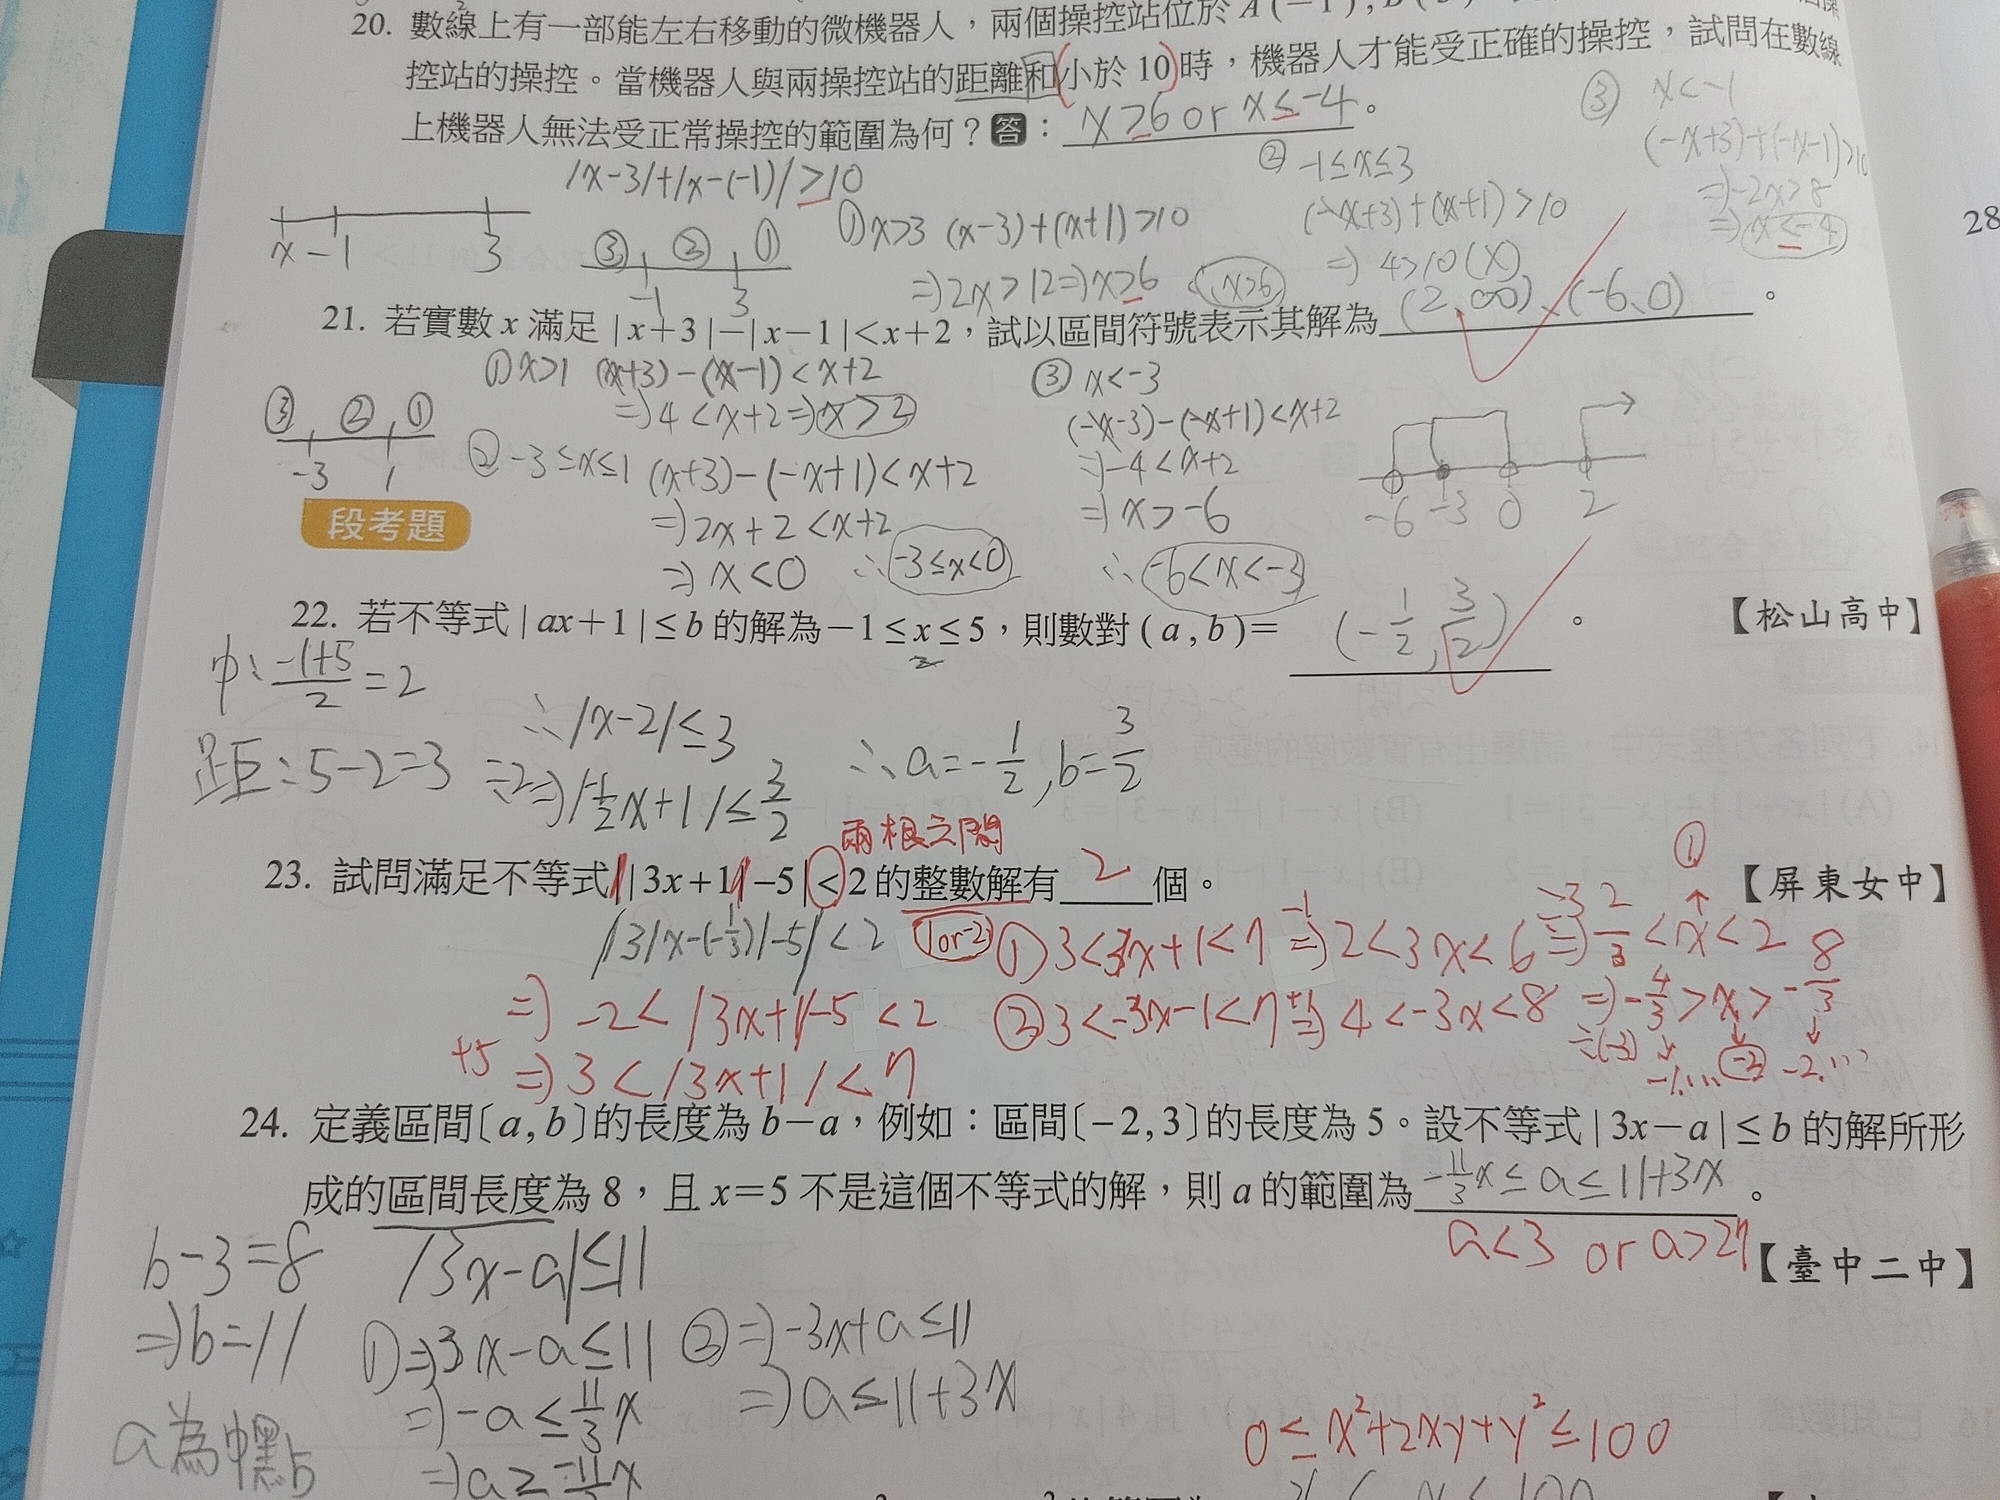 20. 數線上有一部能左右移動的微機器人，兩個操控站位於 A(-1), B(
控站的操控。當機器人與兩操控站的距離和小於 10 時，機器人才能受正確的操控，試問在數線
上機器人無法受正常操控的範圍為何？答：x≥6 or x≤-4。
|x-3|+|x-(-1)|≥10
x -1 3
③ ② ①
-1 3
① x>3 (x-3)+(x+1)>10
⇒2x>12⇒x≥6 x>6
② -1≤x≤3
(-x+3)+(x+1)>10
⇒ 4>10(X)
③ x<-1
(-x+3)+(-x-1)>10
⇒-2x>8
⇒ x≤-4
28
21. 若實數 x 滿足 |x+3|-|x-1|<x+2，試以區間符號表示其解為 (2,∞)、(-6,0)。
① x>1 (x+3)-(x-1)<x+2
⇒4<x+2⇒x>2
③ ② ①
-3 1
② -3≤x≤1 (x+3)-(-x+1)<x+2
⇒2x+2<x+2
⇒ x<0 ∴ -3≤x<0
③ x<-3
(-x-3)-(-x+1)<x+2
⇒-4<x+2
⇒ x>-6
∴ -6<x<-3
-6 -3 0 2
段考題
22. 若不等式 |ax+1|≤b 的解為 -1≤x≤5，則數對 (a,b)= (-1/2, 3/2)。【松山高中】
2
中: (-1+5)/2=2
距: 5-2=3
∴|x-2|≤3
÷-2⇒|-1/2x+1|≤3/2
∴a=-1/2, b=3/2
兩根之間
23. 試問滿足不等式 ||3x+1|-5|<2 的整數解有 2 個。【屏東女中】
|3|x-(-1/3)|-5|<2
1 or -2
⇒ -2<|3x+1|-5<2
+5 ⇒ 3<|3x+1|<7
① 3<3x+1<7 -1⇒ 2<3x<6 ÷3⇒ 2/3<x<2
①
② 3<-3x-1<7 +1⇒ 4<-3x<8 ÷(-3)⇒ -4/3>x>-8/3
-1.... -2 -2....
24. 定義區間〔a,b〕的長度為 b-a，例如：區間〔-2,3〕的長度為 5。設不等式 |3x-a|≤b 的解所形
成的區間長度為 8，且 x=5 不是這個不等式的解，則 a 的範圍為 -11/3x≤a≤11+3x。
a<3 or a>27
【臺中二中】
b-3=8
⇒b=11
a為中點
|3x-a|≤11
①⇒3x-a≤11
⇒-a≤11/3x
②⇒-3x+a≤11
⇒a≤11+3x
0≤x²+2xy+y²≤100